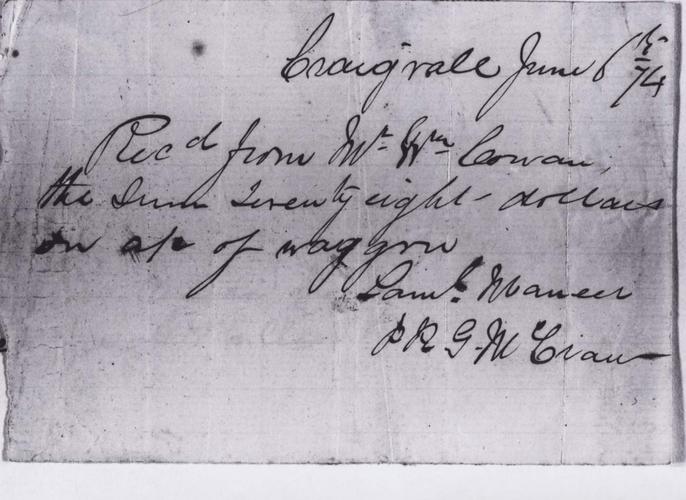 Craigvale June 6th /74
Recd from Mr Wm Cowan,
the Sum Seventy eight - dollars
on a/c of waggon
Saml Maneer
PR G. McCraw